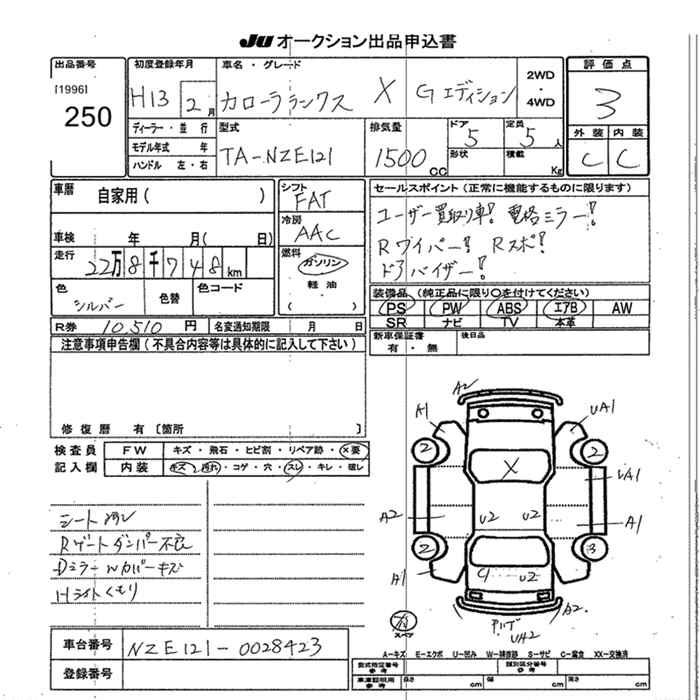 JU オークション出品申込書
出品番号
[1996]
250
初度登録年月
H13 2月
車名・グレード
カローラランクス X Gエディション
2WD
・
4WD
評価点
3
ディーラー・並行
モデル年式 年
ハンドル 左・右
型式
TA-NZE121
排気量
1500 CC
ドア 5
形状
定員 5人
積載
外装 内装
C C
車歴
自家用( )
車検 年 月( 日)
走行
22万8千748km
色
シルバー
色替
色コード
シフト
FAT
冷房
AAC
燃料
ガソリン
軽油
セールスポイント(正常に機能するものに限ります)
ユーザー買取り車! 電格ミラー!
Rワイパー! Rスポ!
ドアバイザー!
装備品(純正品に限り○を付けてください)
PS PW ABS エアB AW
SR ナビ TV 本革
R券 10,510円 名変通知期限 月 日
新車保証書
有・無
後日品
注意事項申告欄(不具合内容等は具体的に記入して下さい)
修復歴 有 [箇所 ]
検査員
記入欄
FW キズ・飛石・ヒビ割・リペア跡・×要
内装 キズ・汚れ・コゲ・穴・スレ・キレ・破レ
シート
Rゲートダンパー不良
DミラーWカバーキズ
Hライトくもり
A2
A1
UA1
2
2
X
UA1
A2
U2
U2
A1
2
3
A1
U2
A2
UA2
スペア
A-キズ E-エクボ U-凹み W-補修跡 S-サビ C-腐食 XX-交換済
車台番号 NZE121-0028423
登録番号
型式指定番号
参考
類別区分番号
参考
車車証明用
参考
長さ cm
幅 cm
高さ cm